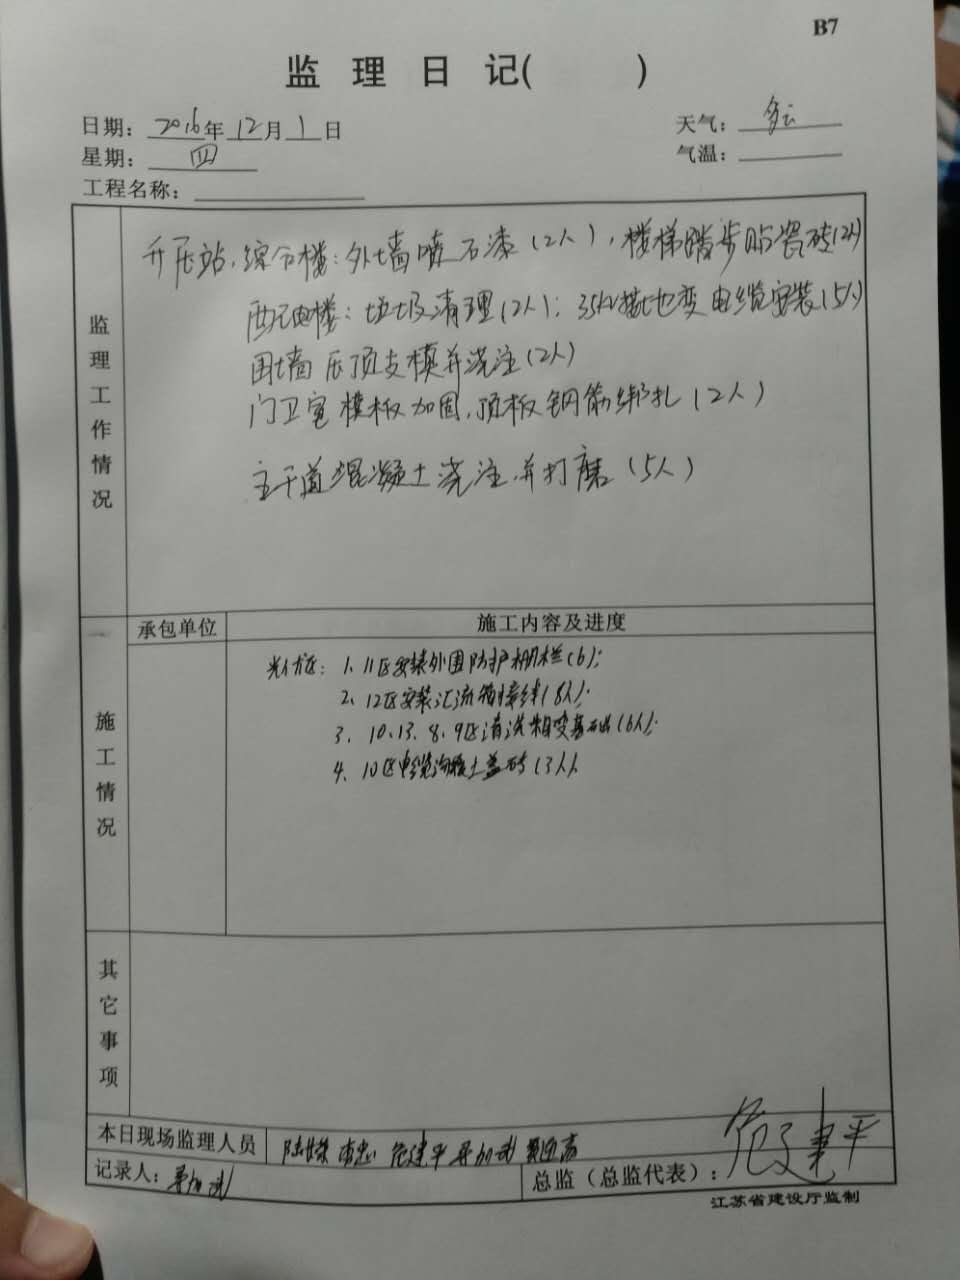 B7
监 理 日 记(          )
日期：2016年12月1日
天气：多云
星期：四
气温：
工程名称：
监理工作情况
升压站，综合楼：外墙喷石漆（2人），楼梯踏步贴瓷砖（2人）
配电楼：垃圾清理（2人）；35kV接地变电缆安装（5人）
围墙压顶支模并浇注（2人）
门卫室模板加固，顶板钢筋绑扎（2人）
主干道混凝土浇注并打磨（5人）
承包单位
施工内容及进度
施工情况
1、11区安装外围防护栅栏（6）；
2、12区安装汇流箱接线（8人）；
3、10、13、8、9区清洗箱变基础（6人）；
4、10区电缆沟覆土盖砖（3人）
其它事项
本日现场监理人员 危建平
记录人：
总监（总监代表）：危建平
江苏省建设厅监制